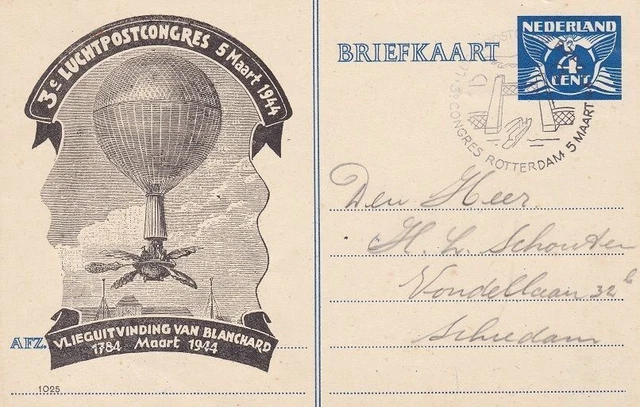 3e LUCHTPOSTCONGRES 5 Maart 1944
AFZ.
VLIEGUITVINDING VAN BLANCHARD
1784 Maart 1944
1025
BRIEFKAART
NEDERLAND
4
CENT
3e CONGRES ROTTERDAM 5 MAART
Den Heer
H. L. Schouten
Vondellaan 32b
Schiedam